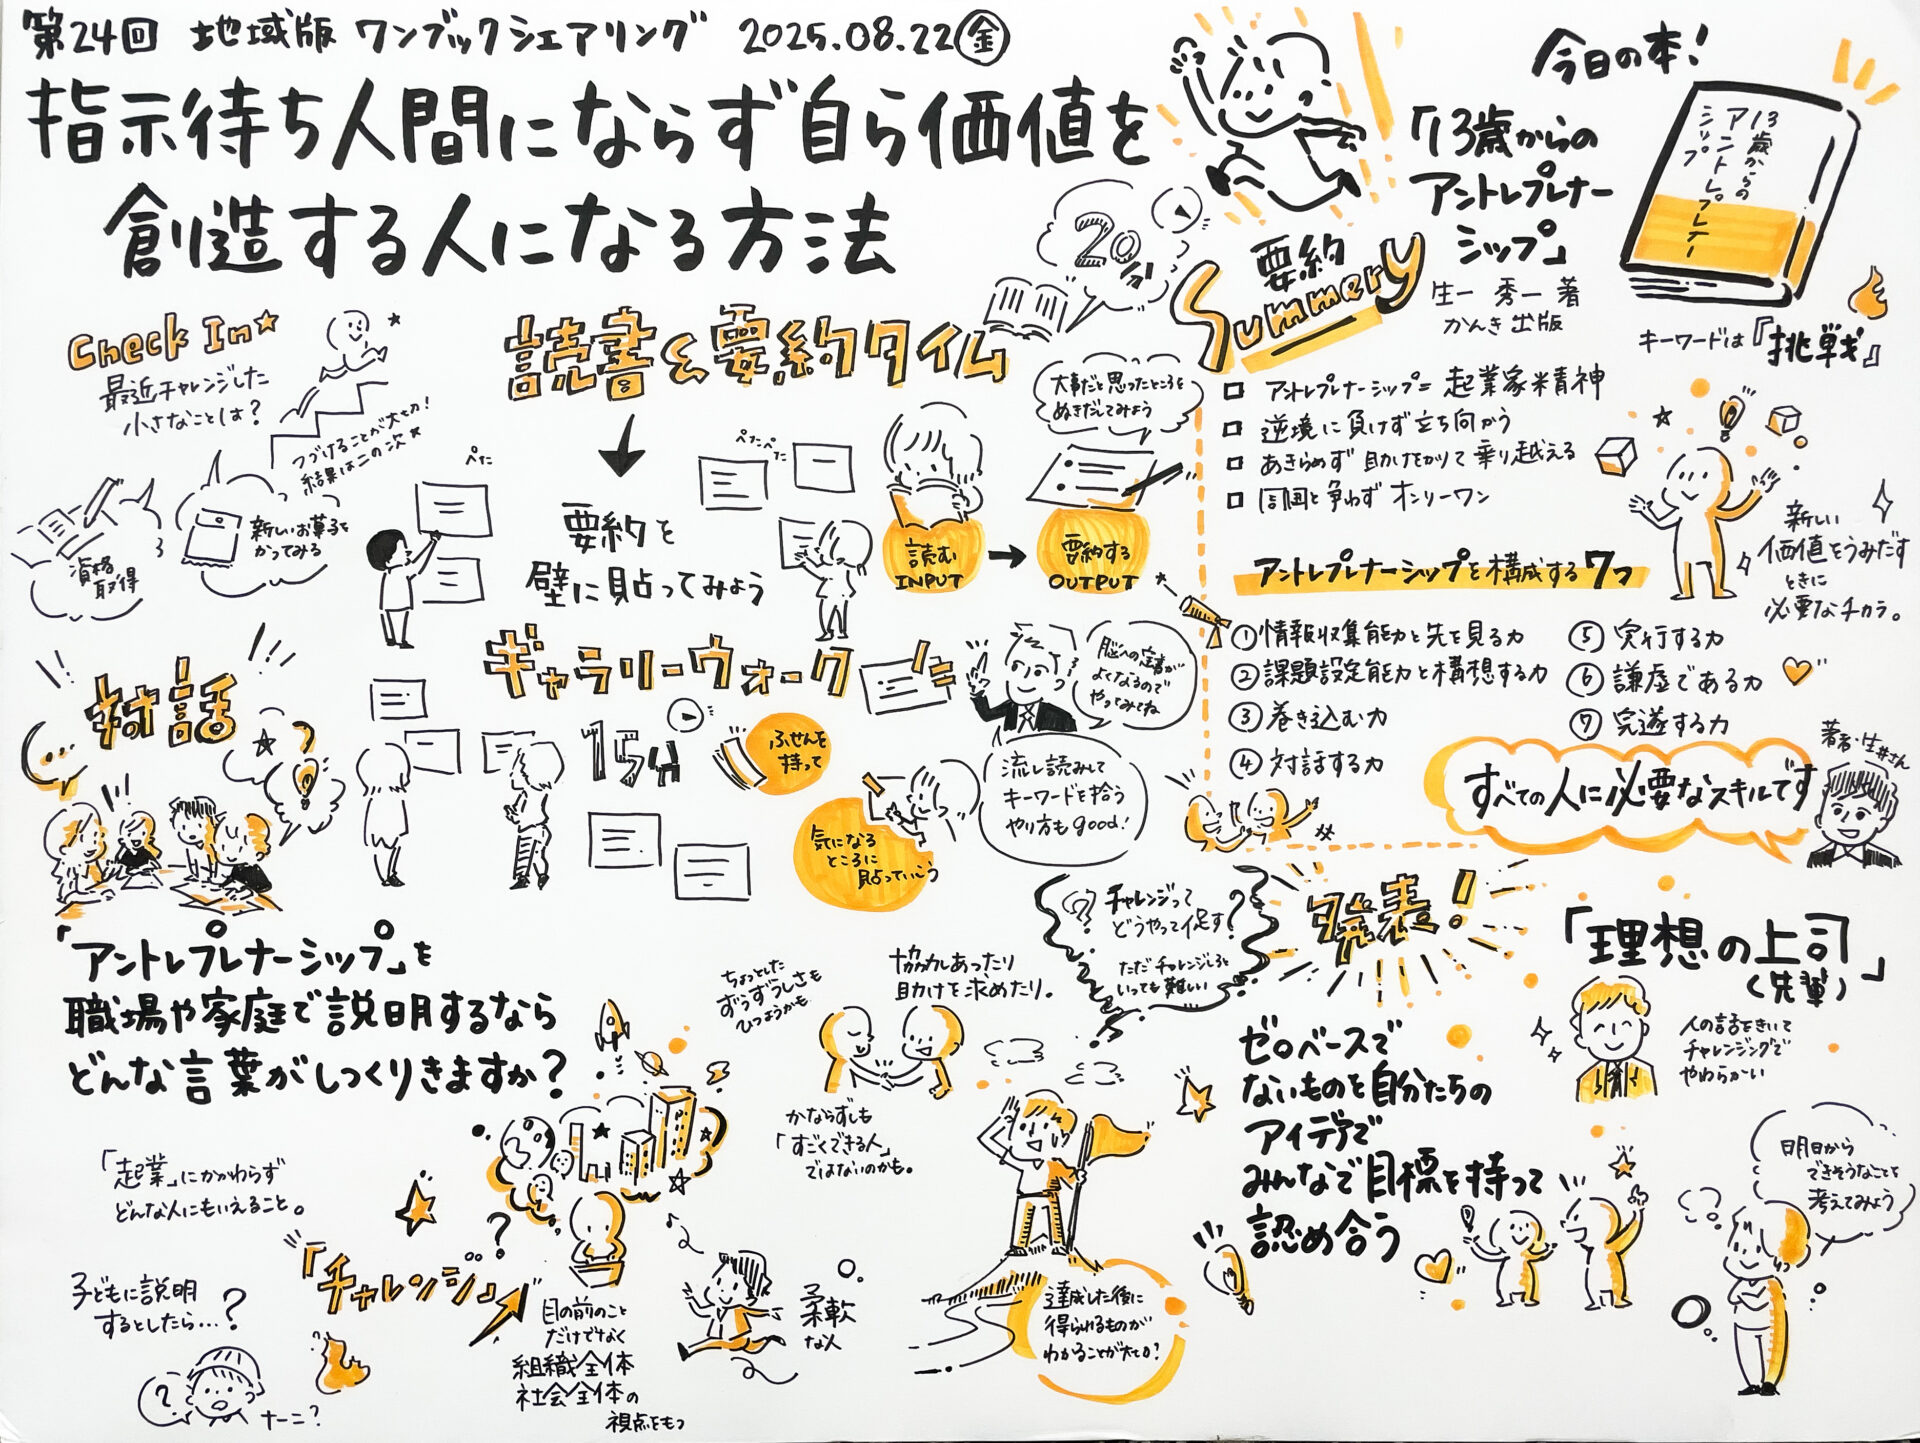 第24回 地域版 ワンブックシェアリング 2025.08.22㊎
指示待ち人間にならず自ら価値を
創造する人になる方法
Check In
最近チャレンジした
小さなことは?
つづけることが大切!
結果は二の次
資格
取得
新しいお菓子を
かってみる
読書&要約タイム
20分
要約を
壁に貼ってみよう
ぺた
ぺたぺた
大事だと思ったところを
ぬきだしてみよう
読む
INPUT
要約する
OUTPUT
ギャラリーウォーク
15分
ふせんを
持って
気になる
ところに
貼っていこう
脳への定着が
よくなるので
やってみてね
流し読みして
キーワードを拾う
やり方もgood!
要約
Summery
今日の本!
「13歳からの
アントレプレナー
シップ」
生一 秀一 著
かんき出版
13歳からの
アントレプレナー
シップ
キーワードは『挑戦』
アントレプレナーシップ=起業家精神
逆境に負けず立ち向かう
あきらめず助けをかりて乗り越える
周囲と争わずオンリーワン
アントレプレナーシップを構成する7つ
①情報収集能力と先を見る力
②課題設定能力と構想する力
③巻き込む力
④対話する力
⑤実行する力
⑥謙虚である力
⑦完遂する力
新しい
価値をうみだす
ときに
必要なチカラ。
すべての人に必要なスキルです
著者・生井さん
対話
「アントレプレナーシップ」を
職場や家庭で説明するなら
どんな言葉がしっくりきますか?
「起業」にかかわらず
どんな人にもいえること。
子どもに説明
するとしたら…?
?
ナーニ?
「チャレンジ」
目の前のこと
だけでなく
組織全体
社会全体の
視点をもつ
柔軟
な人
ちょっとした
ずうずうしさも
ひつようかも
協力しあったり
助けを求めたり。
かならずしも
「すごくできる人」
ではないのかも。
チャレンジって
どうやって促す?
ただチャレンジしろと
いっても難しい
達成した後に
得られるものが
わかることが大切?
発表!
「理想の上司」
(先輩)
人の話をきいて
チャレンジングで
やわらかい
ゼロベースで
ないものを自分たちの
アイデアで
みんなで目標を持って
認め合う
明日から
できそうなことを
考えてみよう